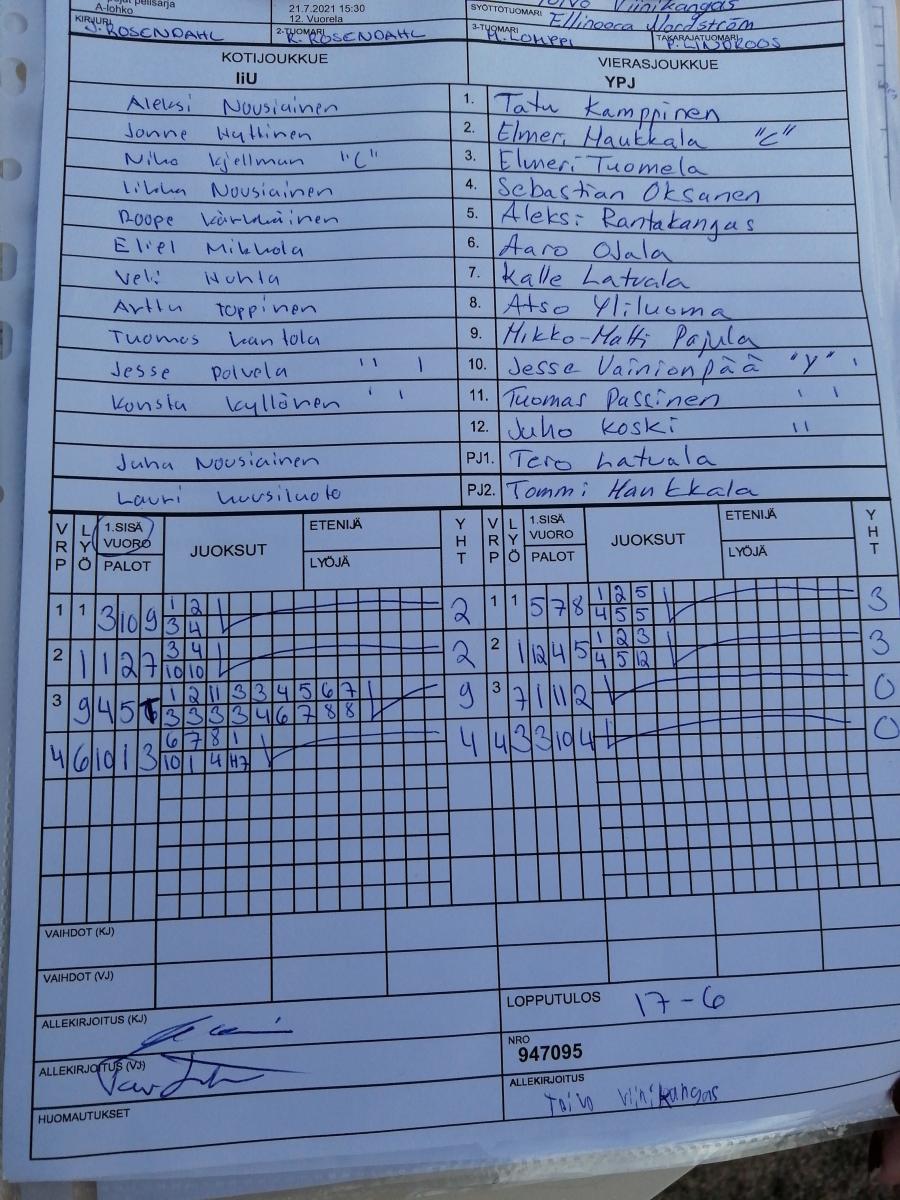 pelisarja
A-lohko 21.7.2021 15:30 Viinikangas
12. Vuorela SYÖTTÖTUOMARI Ellinoora Nordström
KIRJURI J. ROSENDAHL 2-TUOMARI R. ROSENDAHL 3-TUOMARI TAKARAJATUOMARI P. LINDROOS
KOTIJOUKKUE VIERASJOUKKUE
IiU YPJ
Aleksi Nousiainen 1. Tatu Kamppinen
Janne Hyttinen 2. Elmeri Haukkala "C"
Niko Kjellman "C" 3. Elmeri Tuomela
Iikka Nousiainen 4. Sebastian Oksanen
Roope Kärkkäinen 5. Aleksi Rantakangas
Eliel Mikkola 6. Aaro Ojala
Veli Huhta 7. Kalle Latvala
Arttu Toppinen 8. Atso Yliluoma
Tuomas Kantola 9. Mikko-Matti Pajula
Jesse Polvela " I 10. Jesse Vainionpää "Y" '
Konsta Kyllönen ' ' 11. Tuomas Passinen ' '
12. Juho Koski "
Juha Nousiainen PJ1. Tero Latvala
Lauri Kuusiluoto PJ2. Tommi Haukkala
VRP LYÖ 1.SISÄ VUORO PALOT JUOKSUT ETENIJÄ LYÖJÄ YHT VRP LYÖ 1.SISÄ VUORO PALOT JUOKSUT ETENIJÄ LYÖJÄ YHT
1 1 3 10 9 1 2 2 1 1 5 7 8 1 2 5 3
3 4 4 5 5
2 1 1 2 7 3 4 2 2 1 12 4 5 1 2 3 3
10 10 4 5 12
3 9 4 5 1 2 11 3 3 4 5 6 7 9 3 7 1 11 2 0
3 3 3 3 4 6 7 8 8
4 6 10 1 3 6 7 8 1 4 4 3 3 10 4 0
10 1 4 H7
VAIHDOT (KJ)
VAIHDOT (VJ)
ALLEKIRJOITUS (KJ) LOPPUTULOS 17-6
ALLEKIRJOITUS (VJ) NRO 947095
HUOMAUTUKSET ALLEKIRJOITUS Toivo Viinikangas